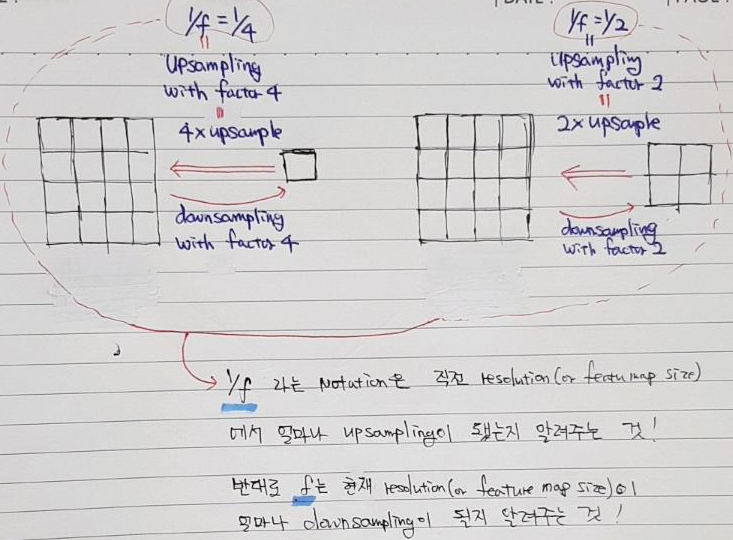 1/f = 1/4
upsampling
with factor 4
4x upsample
downsampling
with factor 4
1/f = 1/2
upsampling
with factor 2
2x upsample
downsampling
with factor 2
1/f 라는 Notation은 직전 resolution(or featu map size)
에서 얼마나 upsampling이 됐는지 알려주는 것!
반대로 f는 현재 resolution(or feature map size)이
얼마나 downsampling이 될지 알려주는 것!